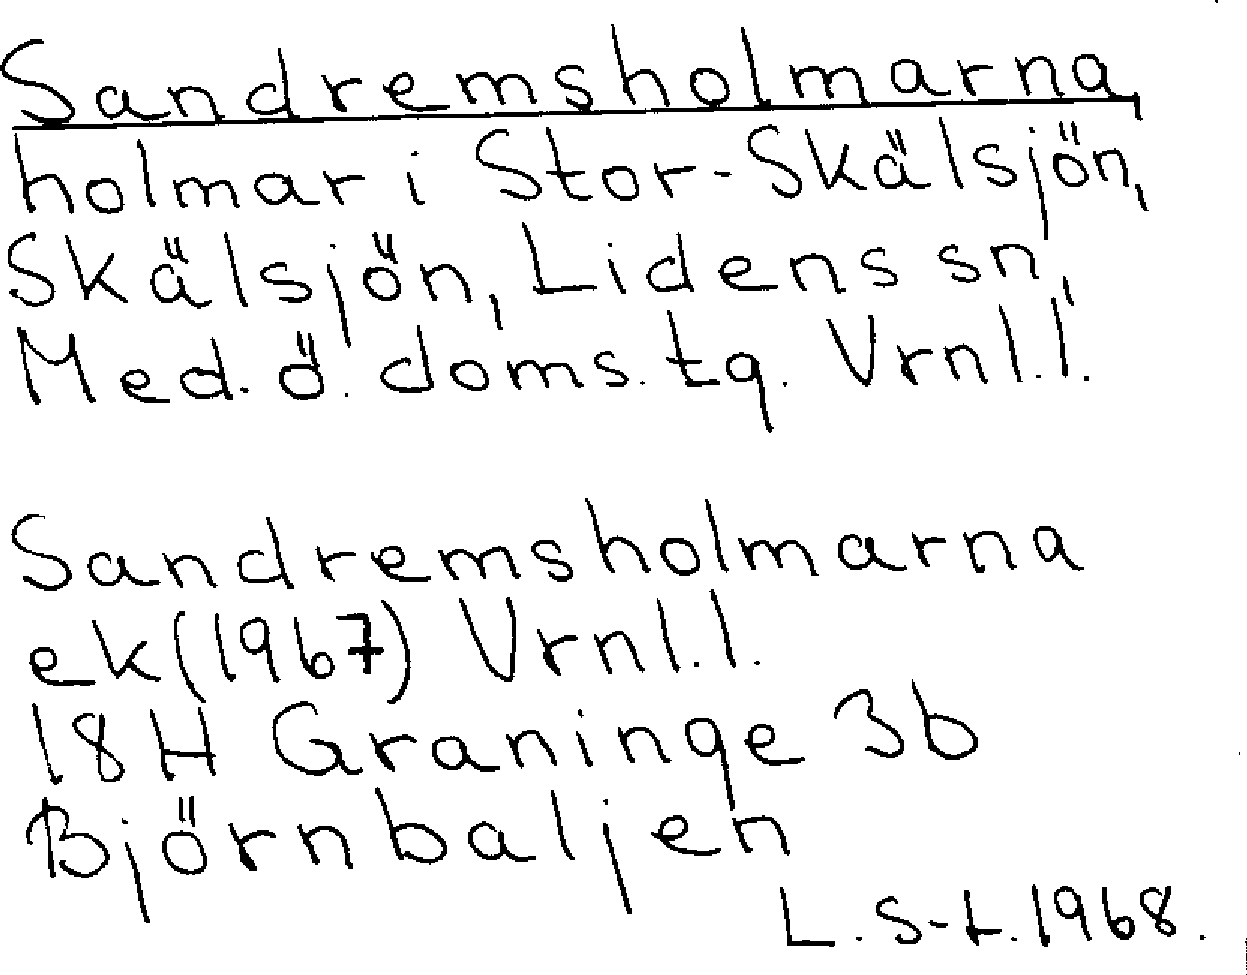 Sandremsholmarna,
holmar i Stor-Skälsjön,
Skälsjön, Lidens sn,
Med. ö. doms. tg. Vrnl.l.
Sandremsholmarna
ek(1967) Vrnl.l.
18H Graninge 3b
Björnbaljen
L. S-t. 1968.